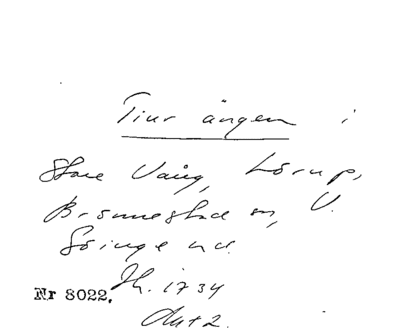 Tiur ängen i
Stora Vång, Lörup,
Bromnestad sn, V.
Göinge hd.
Nr 8022.
Jh. 1734
Akt 2.